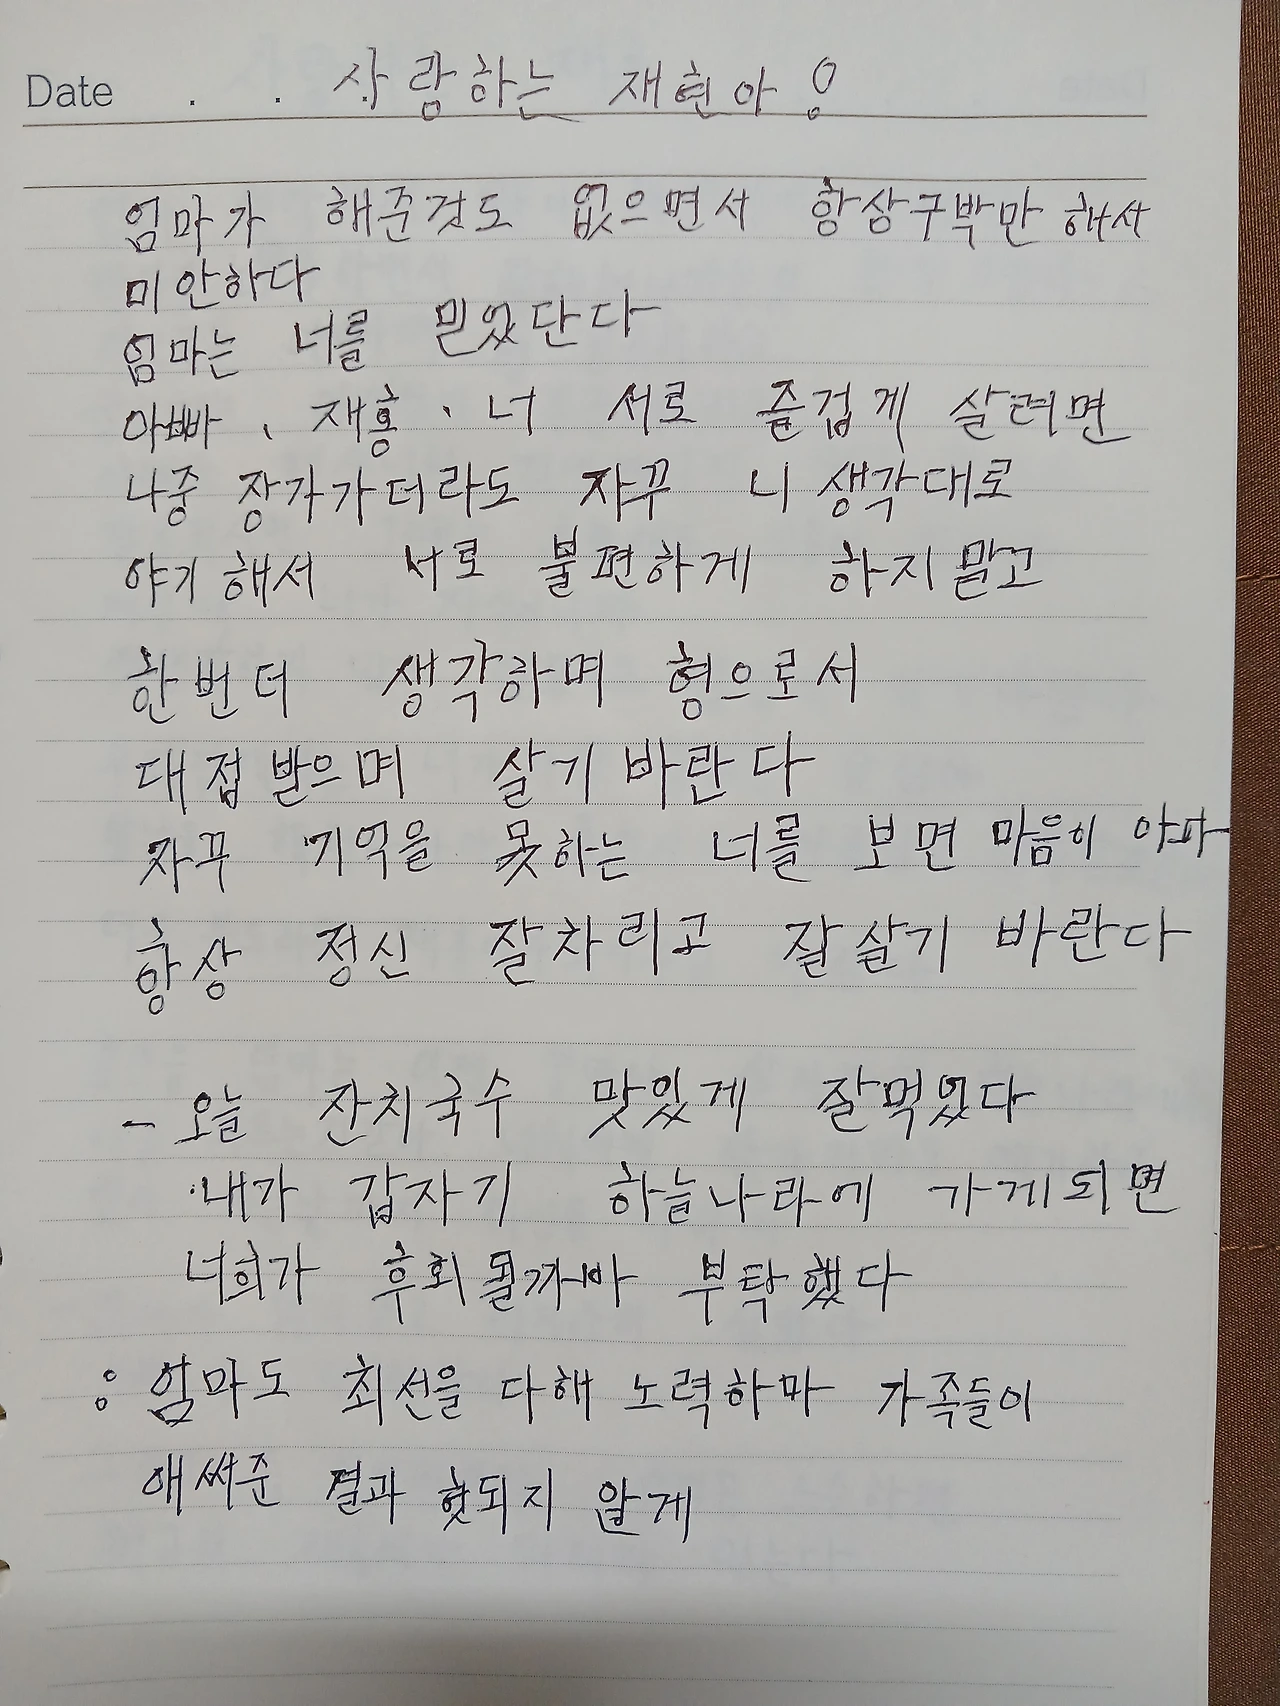 Date . . 사랑하는 재현아!
엄마가 해준것도 없으면서 항상구박만 해서
미안하다
엄마는 너를 믿었단다
아빠、재홍、너 서로 즐겁게 살려면
나중 장가가더라도 자꾸 니 생각대로
야기해서 서로 불편하게 하지말고
한번더 생각하며 형으로서
대접받으며 살기바란다
자꾸 기억을 못하는 너를 보면 마음이 아파
항상 정신 잘차리고 잘살기 바란다
- 오늘 잔치국수 맛있게 잘먹었다
내가 갑자기 하늘나라에 가게되면
너희가 후회될까바 부탁했다
: 엄마도 최선을 다해 노력하마 가족들이
애써준 결과 헛되지 않게